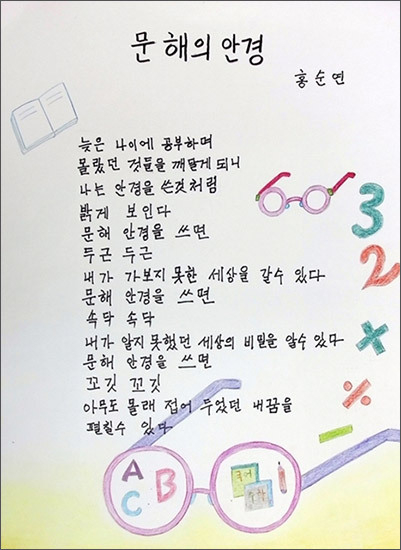 문해의 안경
홍순연
늦은 나이에 공부하며
몰랐던 것들을 깨닫게 되니
나는 안경을 쓴것처럼
밝게 보인다
문해 안경을 쓰면
두근 두근
내가 가보지 못한 세상을 갈수 있다
문해 안경을 쓰면
속닥 속닥
내가 알지 못했던 세상의 비밀을 알수 있다
문해 안경을 쓰면
꼬깃 꼬깃
아무도 몰래 접어 두었던 내꿈을
펼칠수 있다
3
2
×
÷
−
A B C
국어
수학